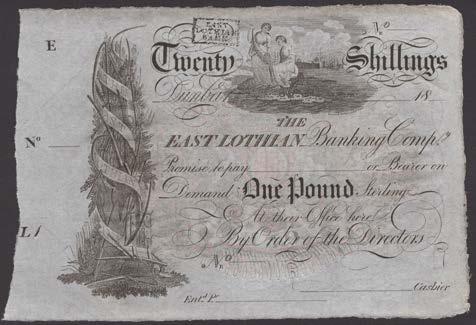 E
EAST
LOTHIAN
BANK
No
Twenty Shillings
Dunbar 18
THE
EAST LOTHIAN Banking Compy.
No
Promise to pay or Bearer on
Demand One Pound Sterling
At their Office here
By Order of the Directors
L1
No
Cashier
Entd. Pr.